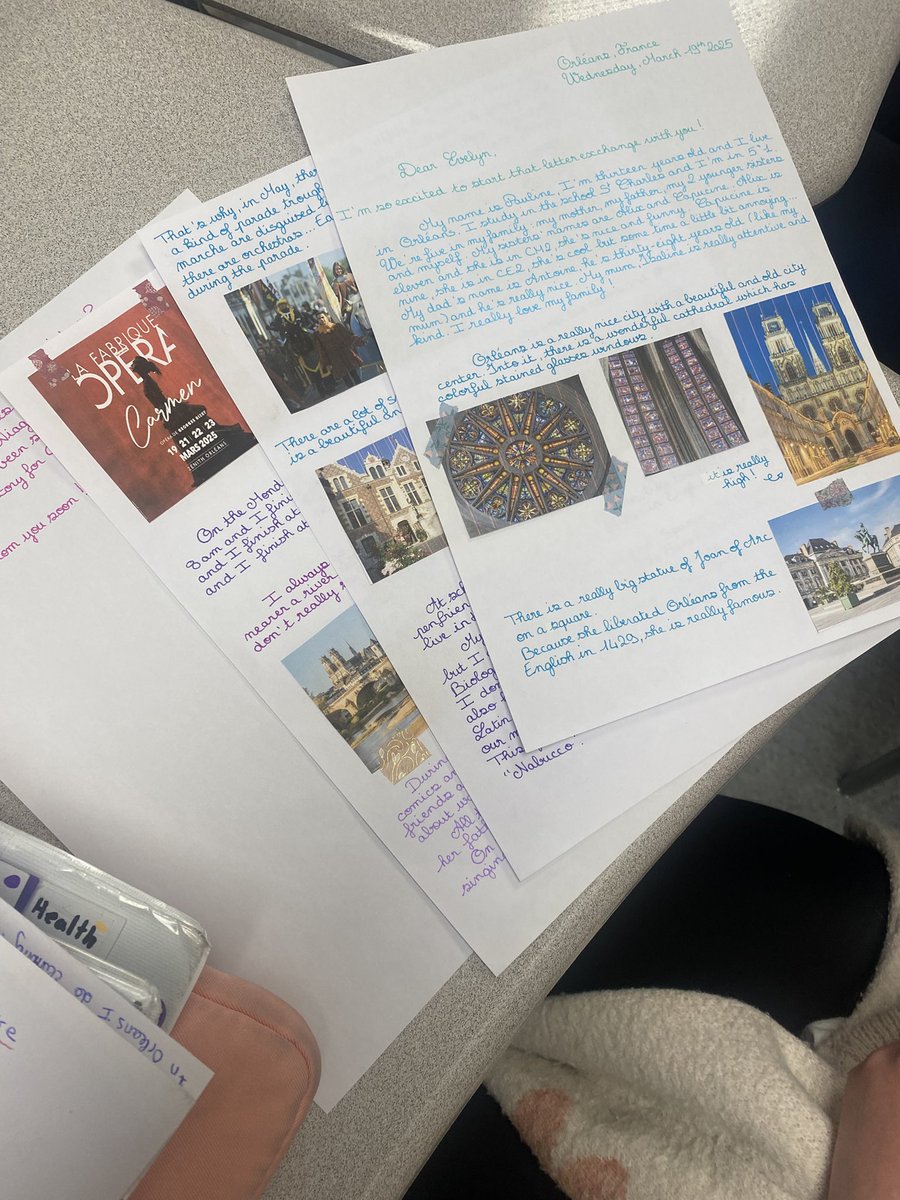 Orléans, France
Wednesday, March 19th 2025
Dear Evelyn,
I'm so excited to start that letter exchange with you!
My name is Pauline, I'm thirteen years old and I live
in Orléans. I study in the school St Charles and I'm in 5°1.
We're five in my family; my mother, my father, my 2 younger sisters
and myself. My sisters names are Alix and Capucine. Alix is
eleven and she is in CM2, she's nice and funny. Capucine is
nine, she is in CE2, she's cool but some time a little bit annoying...
My dad's name is Antoine, he's thirty-eight years old (like my
mum) and he's really nice. My mum, is really attentive and
kind. I really love my family!
Orléans is a really nice city with a beautiful and old city
center. Into it, there is a wonderful cathedral which has
colorful stained glasses windows.
it is really
high!
There is a really big statue of Joan of Arc
on a square.
Because she liberated Orléans from the
English in 1429, she is really famous.
That's why, in May, the
a kind of parade trough
march are disguised
there are orchestras... Ea
during the parade.
There are a lot of
is a beautiful
At sc
penfrien
live in
My
but I
Biolog
I do
also
Latin
our m
This
"Nabucco".
LA FABRIQUE
OPÉRA
Carmen
OPÉRA DE GEORGES BIZET
19 21 22 23
MARS 2025
ZÉNITH ORLÉANS
On the Mond
8am and I fini
and I finish at
and I finish at
I always
nearer a river
don't really
Durin
comics a
friends
about w
All
her fath
On
singin
you soon
Health
in Orléans I do